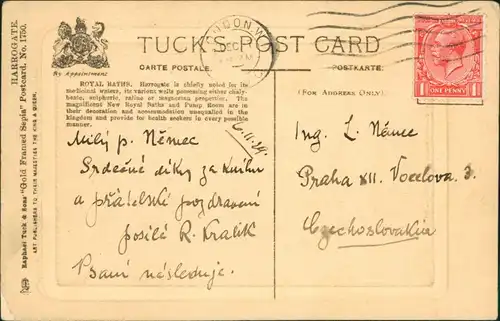 HARROGATE.
Raphael Tuck & Sons' "Gold Framed Sepia" Postcard. No. 1750.
ART PUBLISHERS TO THEIR MAJESTIES THE KING & QUEEN.
By Appointment
TUCK'S POST CARD
CARTE POSTALE.
POSTKARTE.
(FOR ADDRESS ONLY)
ROYAL BATHS. Harrogate is chiefly noted for its
medicinal waters, its various wells possessing either chaly-
beate, sulphuric, saline or magnesian properties. The
magnificent New Royal Baths and Pump Room are in
their decoration and accommodation unequalled in the
kingdom and provide for health seekers in every possible
manner.
LONDON W
DEC
ONE PENNY
Milý p. Němec
Srdečné díky za knihu
a přátelský pozdravení
posílá R. Kralik
Psaní následuje.
Ing. L. Němec
Praha XII. Vocelova 3.
Czechoslovakia